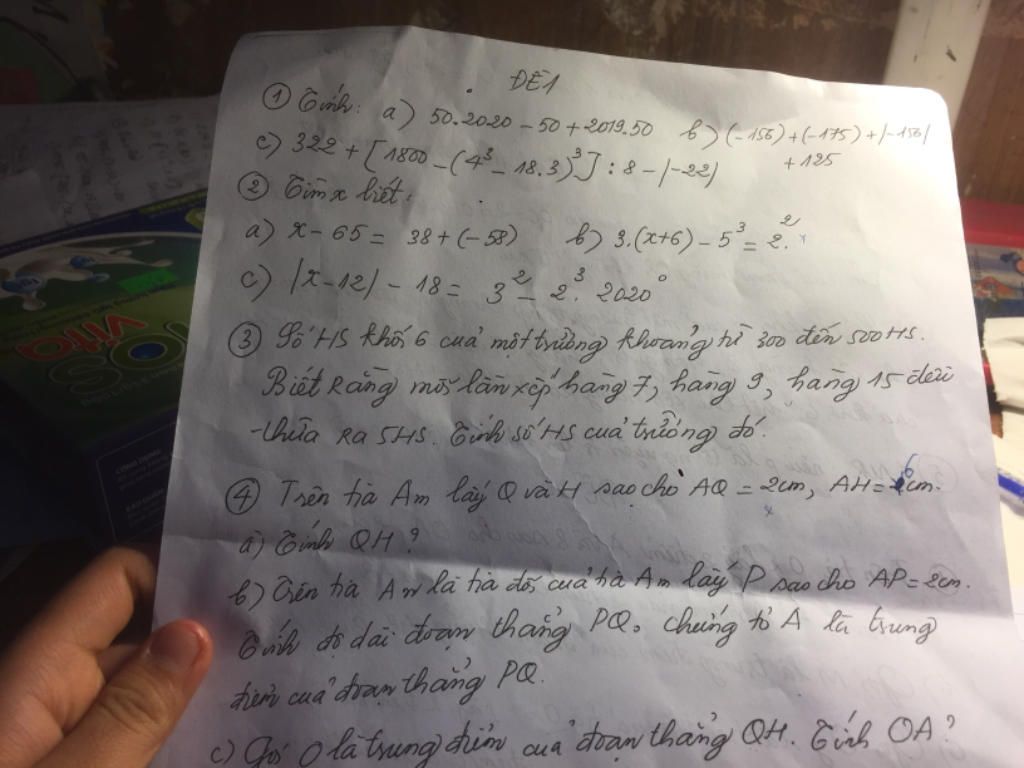 ĐỀ 1
① Tính: a) 50.2020 - 50 + 2019.50 b) (-156) + (-175) + |-156| + 125
c) 322 + [1800 - (4³ - 18.3)³] : 8 - |-22|
② Tìm x biết:
a) x - 65 = 38 + (-58) b) 3.(x+6) - 5³ = 2².
c) |x - 12| - 18 = 3² - 2³. 2020⁰
③ Số HS khối 6 của một trường khoảng từ 300 đến 500 HS.
Biết rằng mỗi lần xếp hàng 7, hàng 9, hàng 15 đều
thừa ra 5HS. Tính số HS của trường đó.
④ Trên tia Am lấy Q và H sao cho AQ = 2cm, AH = 6cm.
a) Tính QH?
b) Trên tia An là tia đối của tia Am lấy P sao cho AP = 2cm.
Tính độ dài đoạn thẳng PQ. chứng tỏ A là trung
điểm của đoạn thẳng PQ.
c) Gọi O là trung điểm của đoạn thẳng QH. Tính OA?
vita